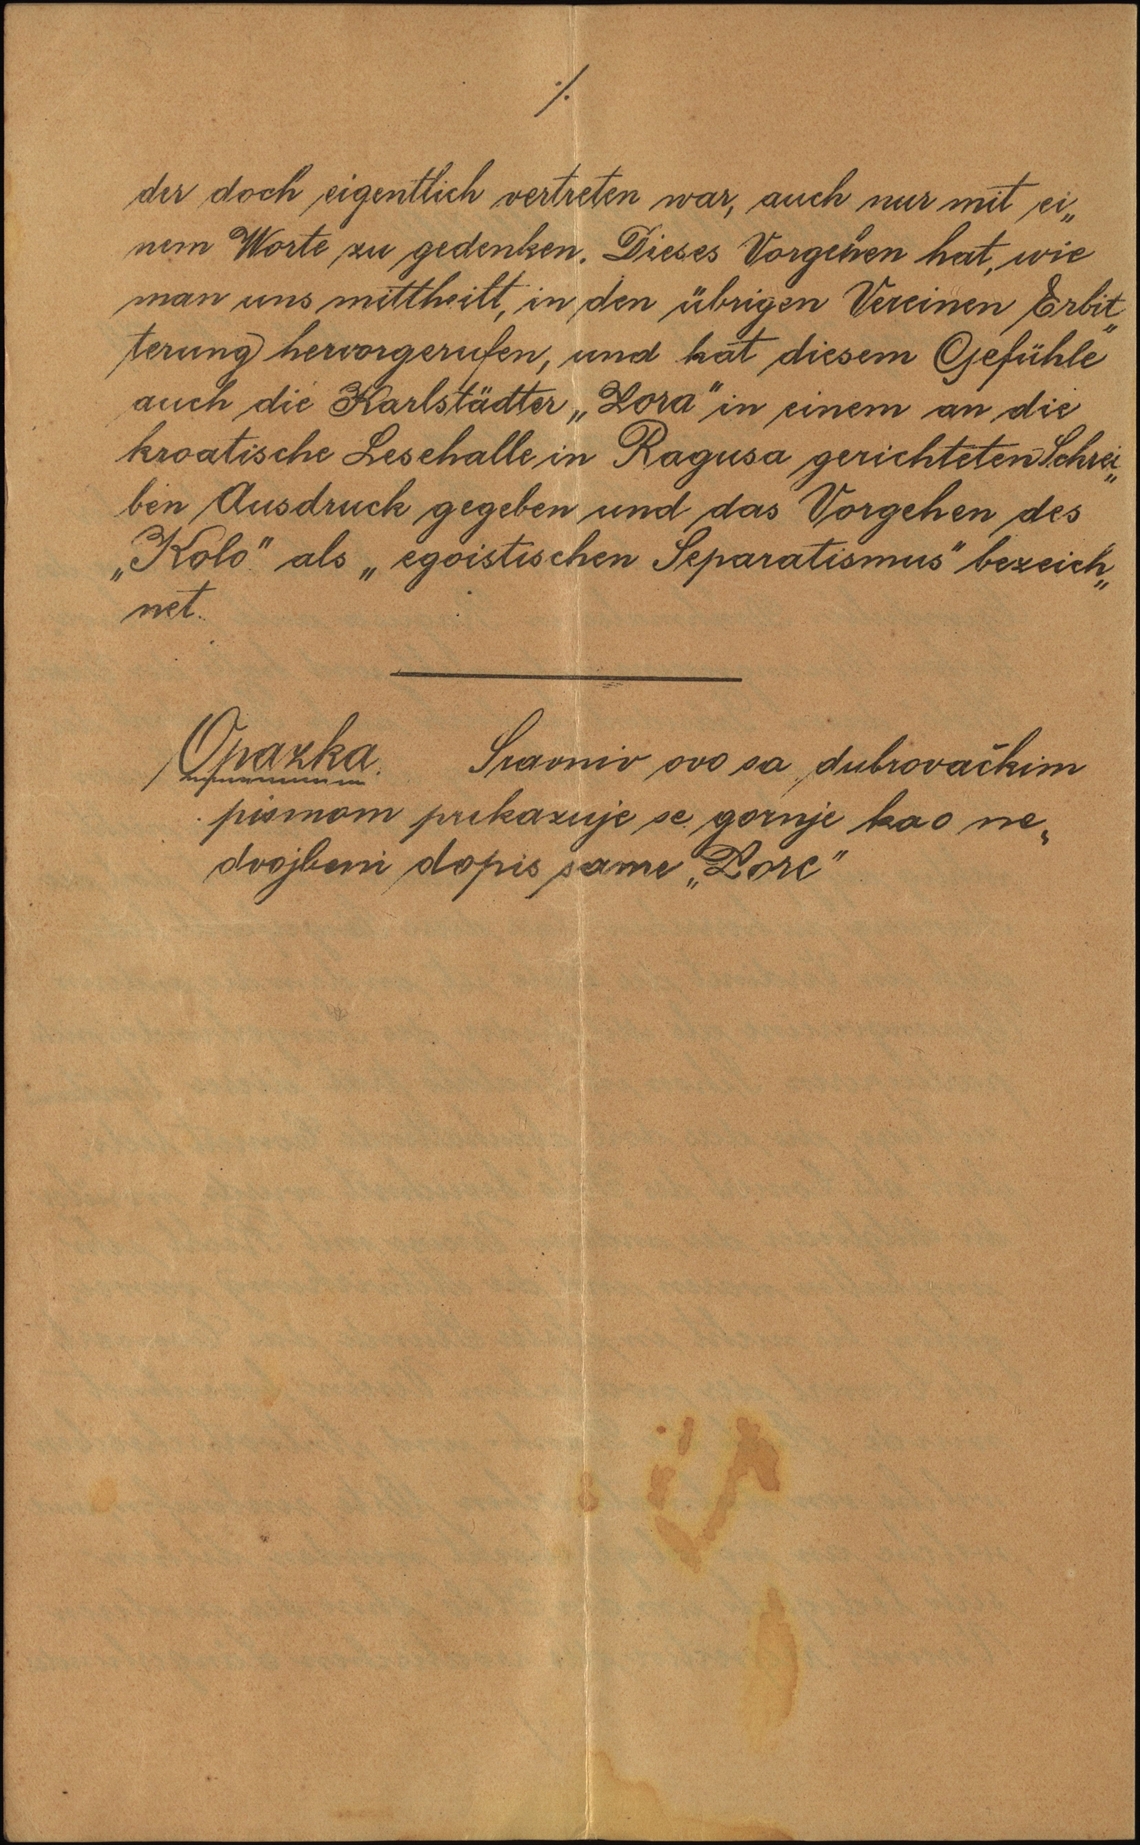 ./.
der doch eigentlich vertreten war, auch nur mit ei„
nem Worte zu gedenken. Dieses Vorgehen hat, wie
man uns mittheilt, in den übrigen Vereinen Erbit„
terung hervorgerufen, und hat diesem Gefühle
auch die Karlstädter „Zora" in einem an die
kroatische Lesehalle in Ragusa gerichteten Schrei„
ben Ausdruck gegeben und das Vorgehen des
„Kolo" als „egoistischen Separatismus" bezeich„
net.
Opazka. Sravniv ovo sa dubrovačkim
pismom prikazuje se gornje kao ne„
dvojbeni dopis same „Zore"